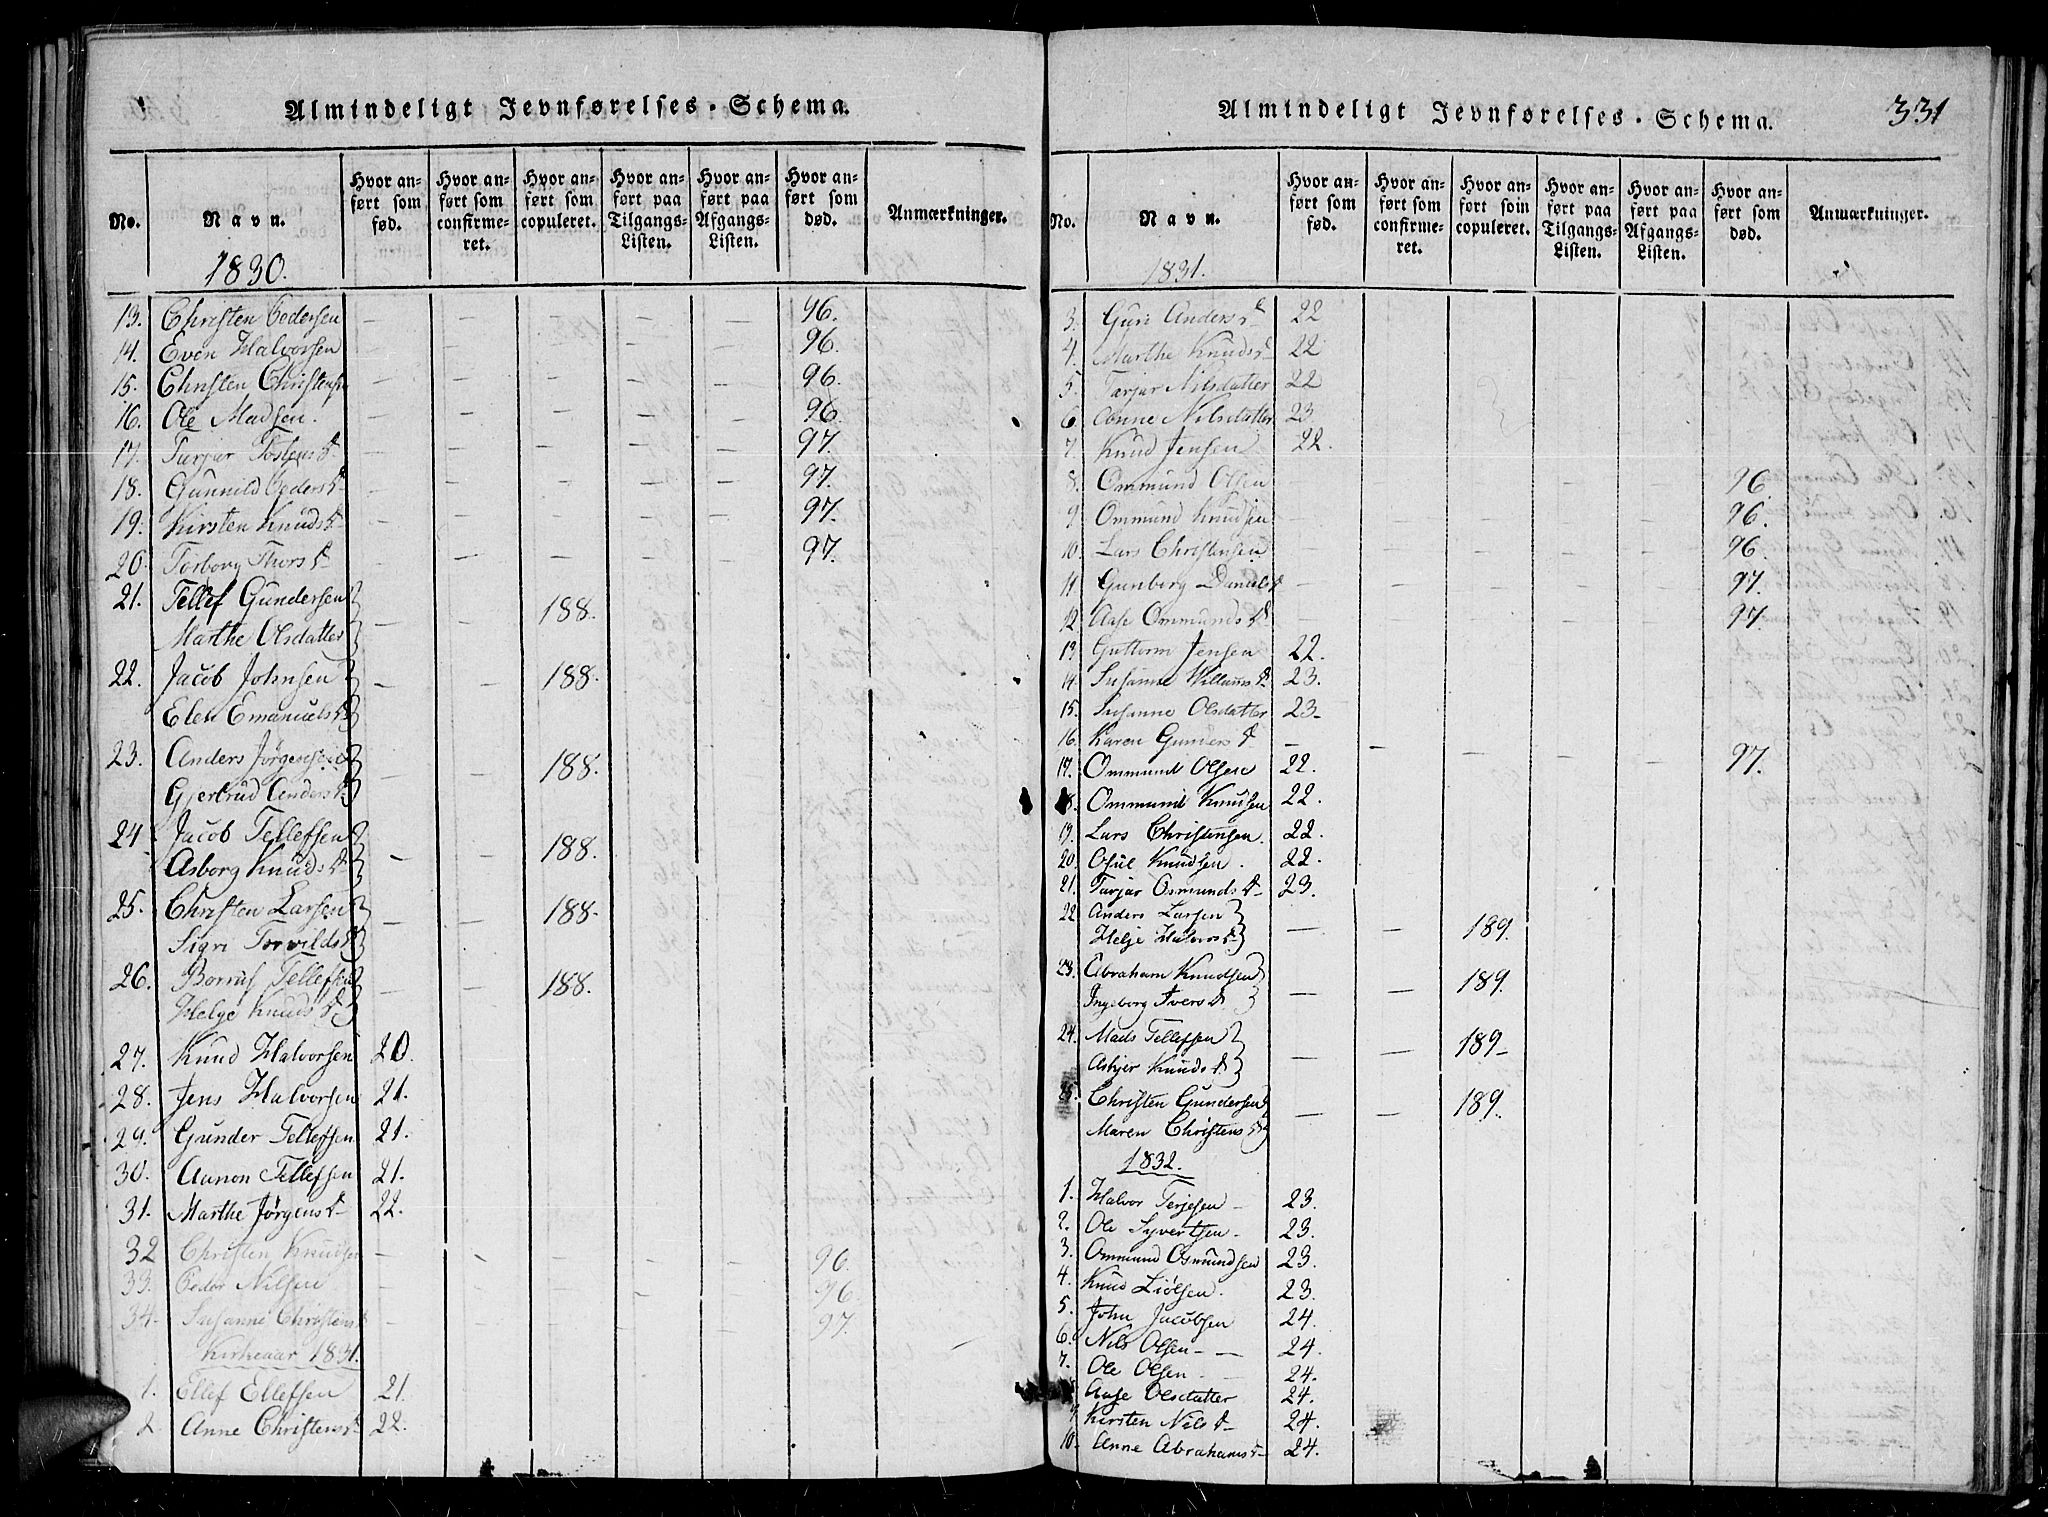 Almindeligt Jevnførelses-Schema.
No.
Navn.
Hvor anført som fød.
Hvor anført som confirmeret.
Hvor anført som copuleret.
Hvor anført paa Tilgangs-Listen.
Hvor anført paa Afgangs-Listen.
Hvor anført som død.
Anmærkninger.
1830.
13. Christen Pedersen — — — — — 96.
14. Even Halvorsen — — — — — 96.
15. Christen Christensen — — — — — 96.
16. Ole Madsen. — — — — — 96.
17. Tarjar Tostens D. — — — — — 97.
18. Gunnild Peders D. — — — — — 97.
19. Kirsten Knuds D. — — — — — 97.
20. Torborg Thors D. — — — — — 97.
21. Tellef Gundersen
Marthe Olsdatter — — 188.
22. Jacob Johnsen
Elen Emanuels D. — — 188.
23. Anders Jørgensen
Gjertrud Anders D. — — 188.
24. Jacob Tellefsen
Asborg Knuds D. — — 188.
25. Christen Larsen
Sigri Torvilds D. — — 188.
26. Tellefsen
Helje Knuds D. — — 188.
27. Knud Halvorsen 20.
28. Jens Halvorsen 21.
29. Gunder Tellefsen 21.
30. Aanon Tellefsen 21.
31. Marthe Jørgens D. 22.
32 Christen Knudsen — — — — — 96.
33. Peder Nilsen — — — — — 96.
34. Susanne Christens D. — — — — — 97.
Kirkeaar 1831.
1. Ellef Ellefsen 21.
2 Anne Christens D. 22.
Almindeligt Jevnførelses-Schema.
331
No.
Navn.
Hvor anført som fød.
Hvor anført som confirmeret.
Hvor anført som copuleret.
Hvor anført paa Tilgangs-Listen.
Hvor anført paa Afgangs-Listen.
Hvor anført som død.
Anmærkninger.
1831.
3. Guri Anders D. 22
4. Marthe Knuds D. 22
5. Tarjar Nilsdatter 22
6. Anne Nilsdatter 23
7. Knud Jensen 22.
8. Ommund Olsen — — — — — 96.
9. Ommund Knudsen — — — — — 96.
10. Lars Christensen — — — — — 96.
11 Gunborg Daniels D. — — — — — 97.
12 Aase Ommunds D. — — — — — 97.
13 Guttorm Jensen 22.
14. Susanne Willums D. 23.
15. Susanne Olsdatter 23.
16. Karen Gunders D. — — — — — 97.
17. Ommund Olsen 22.
18. Ommund Knudsen 22.
19. Lars Christensen. 22.
20. Osul Knudsen. 22.
21. Tarjar Osmunds D. 23.
22 Anders Larsen
Helje Halvors D. — — 189.
23. Abraham Knudsen
Ingeborg Ivers D. — — 189.
24. Mads Tellefsen
Asbjer Knuds D. — — 189.
25. Christen Gundersen
Maren Christens D. — — 189.
1832.
1. Halvor Terjesen — 23.
2. Ole Syvertsen — 23.
3. Ommund Osmundsen 23.
4. Knud Liølsen. 23.
5. John Jacobsen 24.
6. Nils Olsen — — 24.
7. Ole Olsen — 24.
Aase Olsdatter 24.
9 Kirsten Nils D. 24.
10. Anne Abrahams D. 24.